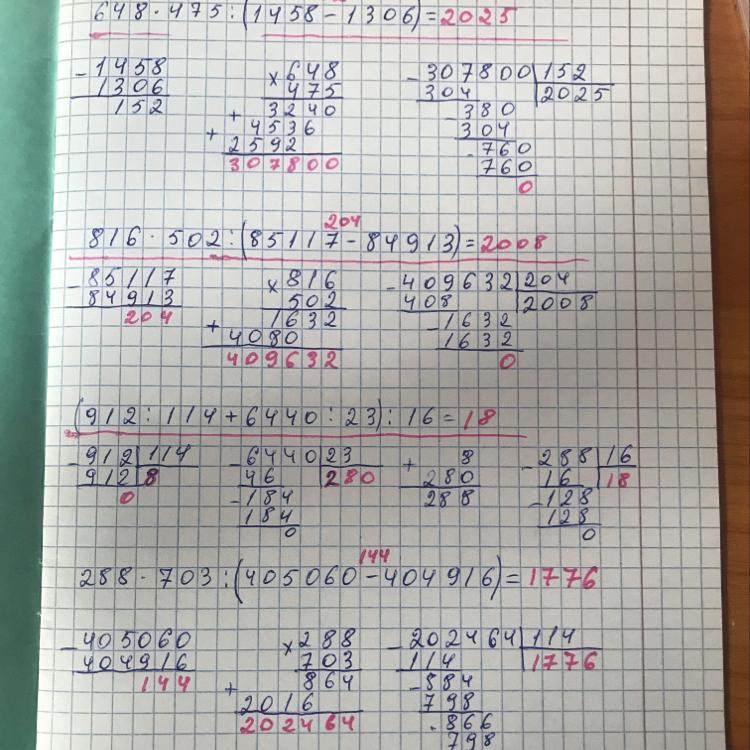 648 · 475 : (1458 − 1306) = 2025
− 1458
1306
152
× 648
475
+ 3240
+ 4536
2592
307800
− 307800 | 152
304 | 2025
− 380
304
− 760
760
0
204
816 · 502 : (85117 − 84913) = 2008
− 85117
84913
204
× 816
502
+ 1632
4080
409632
− 409632 | 204
408 | 2008
− 1632
1632
0
(912 : 114 + 6440 : 23) : 16 = 18
− 912 | 114
912 | 8
0
− 6440 | 23
46 | 280
− 184
184
0
+ 8
280
288
− 288 | 16
16 | 18
− 128
128
0
144
288 · 703 : (405060 − 404916) = 1776
− 405060
404916
144
× 288
703
+ 864
2016
202464
− 202464 | 114
114 | 1776
− 884
798
− 866
798